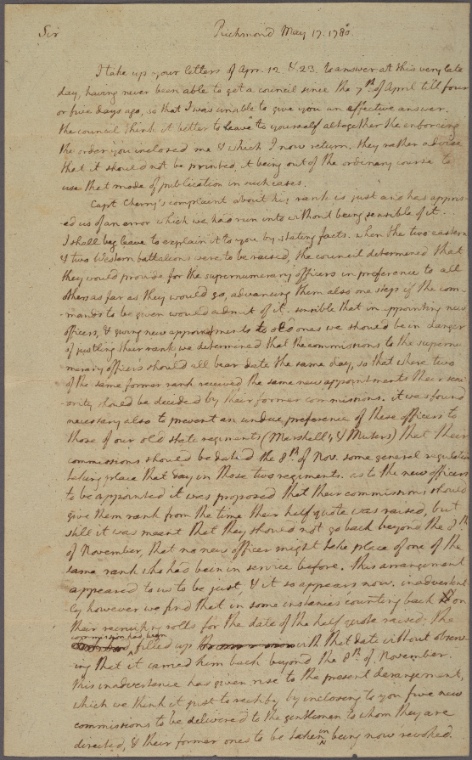 Sir Richmond May 17. 1780.
I take up your letters of Apr. 12. & 23. to answer at this very late
day, having never been able to get a council since the 7th of April till four
or five days ago, so that I was unable to give you an effective answer.
the council think it better to leave to yourself altogether the enforcing
the order you inclosed me & which I now return, they rather advise
that it should not be printed, it being out of the ordinary course to
use that mode of publication in such cases.
Capt Cherry's complaint about his rank is just and has appris-
ed us of an error which we had run into without being sensible of it.
I shall beg leave to explain it to you by stating facts. when the two eastern
& two Western battalions were to be raised, the council determined that
they would provide for the supernumerary officers in preference to all
others as far as they would go, advancing them also one step if the com-
mands to be given would admit of it. sensible that in appointing new
officers, & giving new appointments to old ones we should be in danger
of justling their rank, we determined that the commissions to the supernu-
merary officers should all bear date the same day, so that where two
of the same former rank received the same new appointments their seni-
ority should be decided by their former commissions. it was found
necessary also to prevent an undue preference of these officers to
those of our old state regiments (Marshall's & Muter's) that their
commissions should be dated the 8th of Nov. some general regulation
taking place that day in those two regiments. as to the new officers
to be appointed it was proposed that their commissions should
give them rank from the time their half quota was raised, but
still it was meant that they should not go back beyond the 8th
of November, that no new officer might take place of one of the
same rank who had been in service before. this arrangement
appeared to us to be just, & it so appears now. inadvertent-
ly however we find that in some instances counting back on
their recruiting rolls for the date of the half quota raised, the
commission had been
filled up with that date without observ-
ing that it carried them back beyond the 8th of November.
this inadvertence has given rise to the present derangement,
which we think it just to rectify by inclosing to you five new
commissions to be delivered to the gentlemen to whom they are
directed, & their former ones to be taken in, being now revoked.